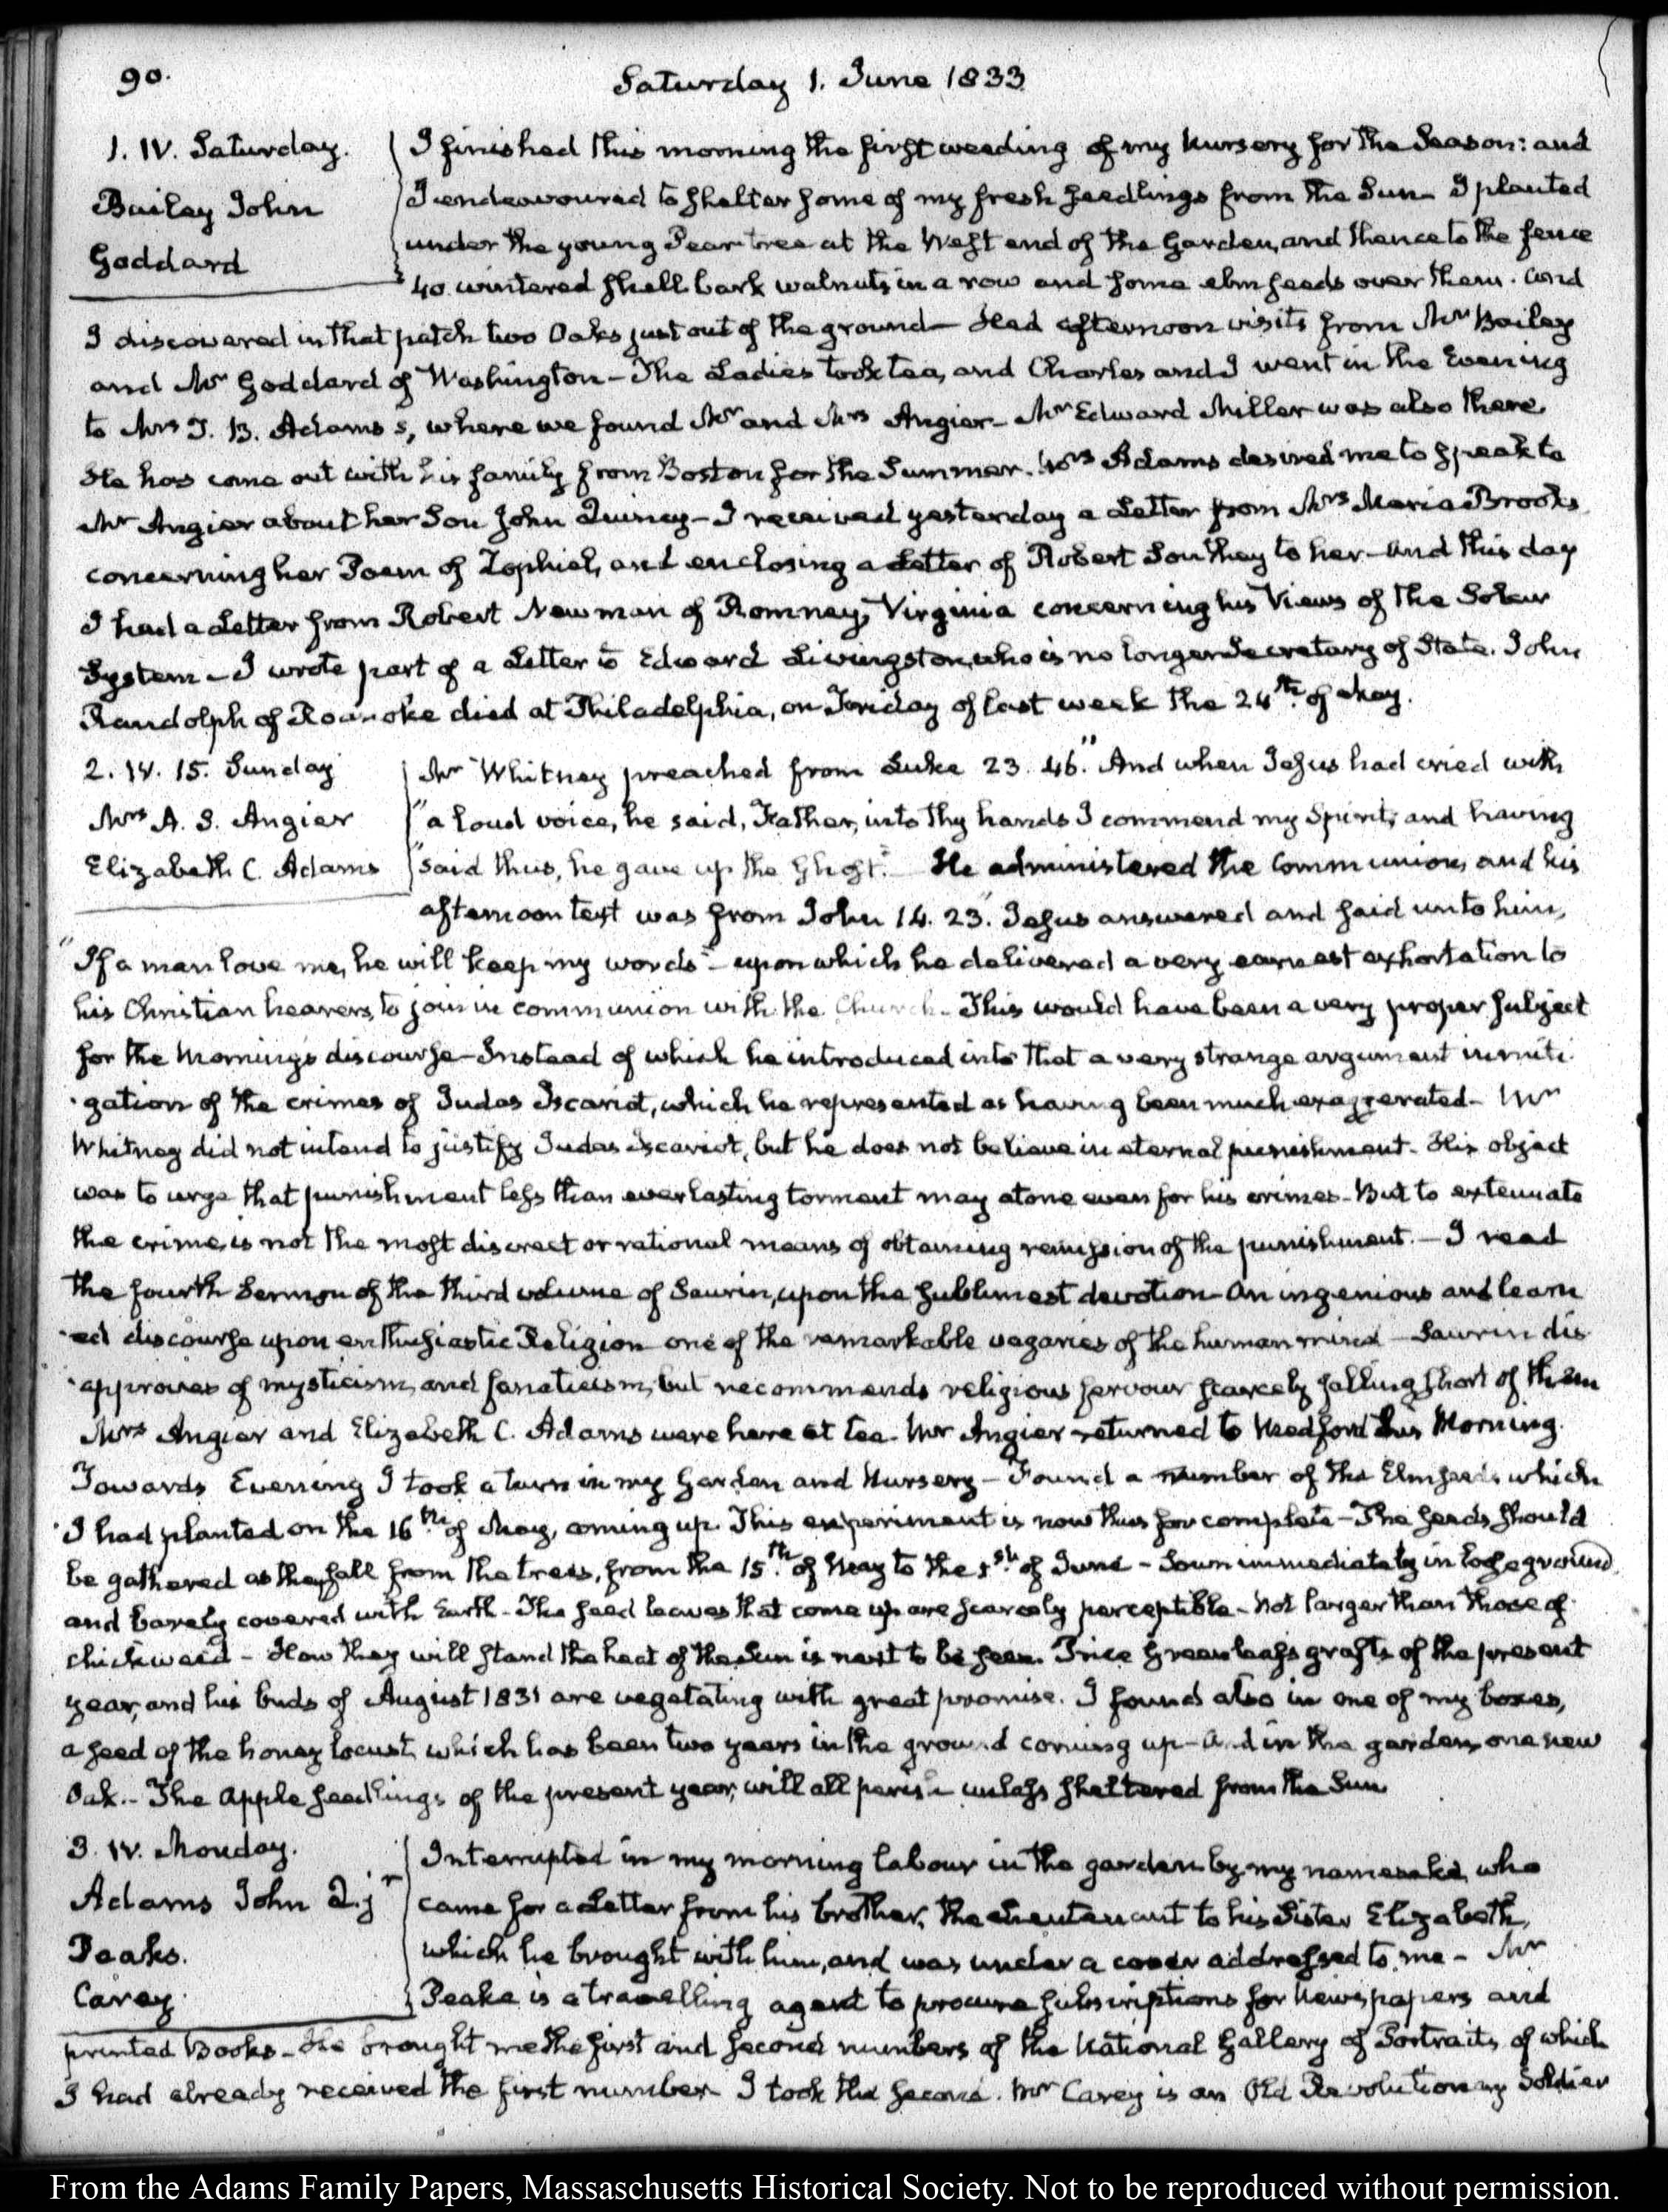 90.
Saturday 1. June 1833
1. IV. Saturday.
Bailey John
Goddard
I finished this morning the first weeding of my Nursery for the Season: and
I endeavoured to shelter some of my fresh seedlings from the Sun— I planted
under the young Pear tree at the West end of the Garden, and thence to the fence
40 wintered shell bark walnuts in a row and some elm seeds over them. And
I discovered in that patch two Oaks just out of the ground— Had afternoon visits from Mr Bailey
and Mr Goddard of Washington— The Ladies took tea, and Charles and I went in the Evening
to Mrs T. B. Adams's, where we found Mr and Mrs Angier— Mr Edward Miller was also there
He has come out with his family from Boston for the Summer. Mrs Adams desired me to speak to
Mr Angier about her Son John Quincy— I received yesterday a Letter from Mrs Maria Brooks
concerning her Poem of Zophiel, and enclosing a Letter of Robert Southey to her— And this day
I had a Letter from Robert Newman of Romney, Virginia concerning his Views of the Solar
System— I wrote part of a Letter to Edward Livingston, who is no longer Secretary of State. John
Randolph of Roanoke died at Philadelphia, on Friday of last week the 24th. of May.
2. IV. 15. Sunday
Mrs A. S. Angier
Elizabeth C. Adams
Mr Whitney preached from Luke 23. 46. "And when Jesus had cried with
"a loud voice, he said, Father, into thy hands I commend my Spirit; and having
"said thus, he gave up the Ghost." He administered the Communion, and his
afternoon text was from John 14. 23. "Jesus answered and said unto him,
"If a man love me, he will keep my words"— upon which he delivered a very earnest exhortation to
his Christian hearers, to join in communion with the Church— This would have been a very proper subject
for the Morning's discourse— Instead of which he introduced into that a very strange argument in miti-
-gation of the crimes of Judas Iscariot, which he represented as having been much exaggerated— Mr
Whitney did not intend to justify Judas Iscariot, but he does not believe in eternal punishment— His object
was to urge that punishment less than everlasting torment may atone even for his crimes— But to extenuate
the crime, is not the most discreet or rational means of obtaining remission of the punishment.— I read
the fourth Sermon of the third volume of Saurin, upon the sublimest devotion— An ingenious and learn
-ed discourse upon enthusiastic Religion one of the remarkable vagaries of the human mind— Saurin dis-
-approves of mysticism, and fanaticism, but recommends religious fervour scarcely falling short of them
Mrs Angier and Elizabeth C. Adams were here at tea. Mr Angier returned to Medford this Morning.
Towards Evening I took a turn in my Garden and Nursery— Found a number of the Elm seeds which
I had planted on the 16th of May, coming up. This experiment is now thus far complete— The seeds should
be gathered as they fall from the trees, from the 15th. of May to the 1st. of June— Sown immediately in loose ground
and barely covered with Earth— The seed leaves that come up are scarcely perceptible— Not larger than those of
chickweed— How they will stand the heat of the Sun is next to be seen. Price Greenleaf's grafts of the present
year, and his buds of August 1831 are vegetating with great promise. I found also in one of my boxes,
a seed of the honey locust, which has been two years in the ground coming up— And in the garden, one new
Oak.— The Apple seedlings of the present year, will all perish unless sheltered from the Sun
3. IV. Monday.
Adams John Q. jr
Peake.
Carey.
Interrupted in my morning labour in the garden by my namesake, who
came for a Letter from his brother, the Lieutenant to his Sister Elizabeth,
which he brought with him, and was under a cover addressed to me— Mr
Peake is a travelling agent to procure subscriptions for Newspapers and
printed Books— He brought me the first and second numbers of the National Gallery of Portraits, of which
I had already received the first number— I took the second. Mr Carey is an Old Revolutionary Soldier
From the Adams Family Papers, Massachusetts Historical Society. Not to be reproduced without permission.